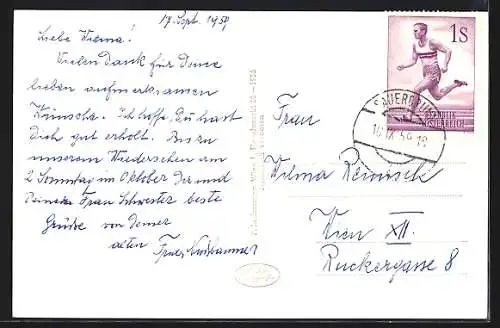 17. Sept. 1959
Liebe Wilma!
Vielen Dank für Deine
lieben aufmerksamen
Wünsche. Ich hoffe, Du hast
Dich gut erholt. Bis zu
unserem Wiedersehen am
2 Sonntag im Oktober Dir und
Deiner Frau Schwester beste
Grüße von Deiner
alten
1S
REPUBLIK
ÖSTERREICH
SAUERBRUNN
Frau
Wilma
Wien XII.
Ruckergasse 8